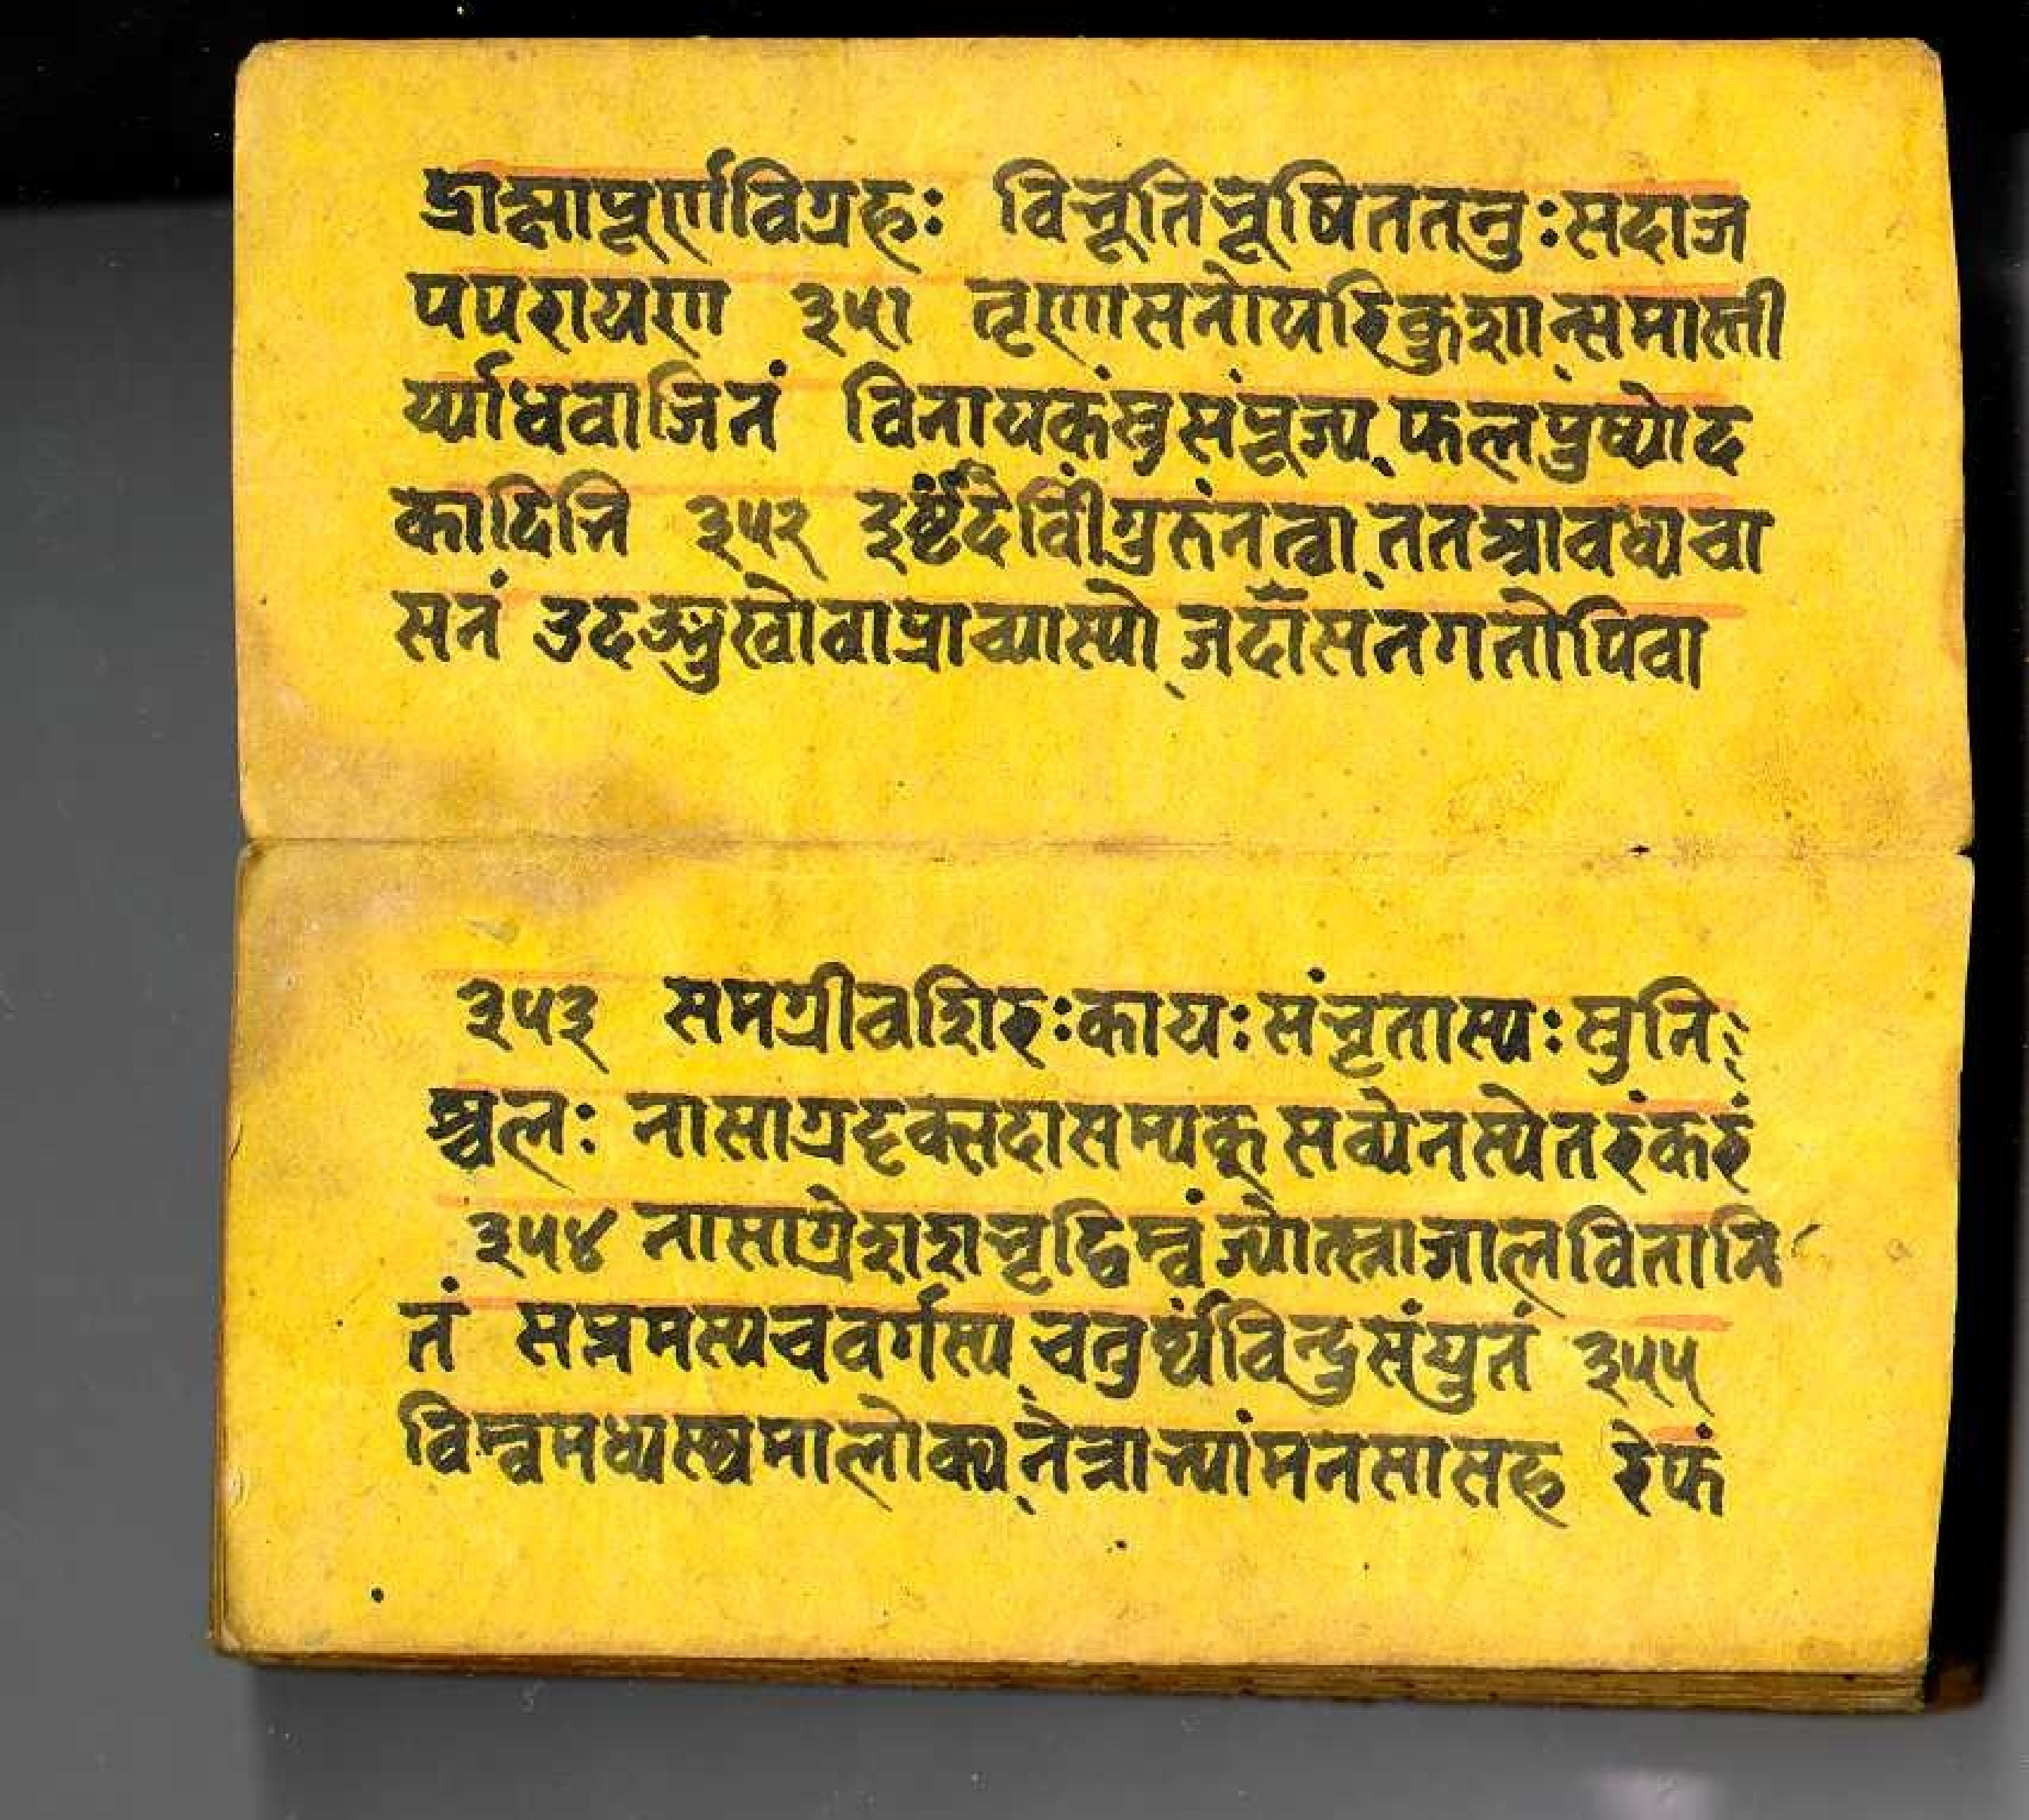 द्राक्षापूर्णविग्रहः विभूतिभूषिततनुः सदाज
पपरायण ३५१ तृणासनोपरिकुशान्समास्ती
र्य्याथवाजिनं विनायकंसुसंपूज्य फलपुष्पोद
कादिनि ३५२ इष्टंदेवींगुरुंनत्वा ततश्चावध्यचा
सनं उदङ्मुखोवाप्राच्यास्यो जदाँसनगतोपिवा
३५३ समग्रीवशिरःकायः संवृतास्यः सुनि
श्चलः नासाग्रदृक्सदासम्यक् सव्येनस्येतरंकरं
३५४ नासाग्रेशशभृद्विम्वं ज्योत्स्नाजालवितानि
तं सप्तमस्यचवर्गस्य चतुर्थंविन्दुसंयुतं ३५५
विम्वमध्यस्थमालोक्य नेत्राभ्यांमनसासह रेफं